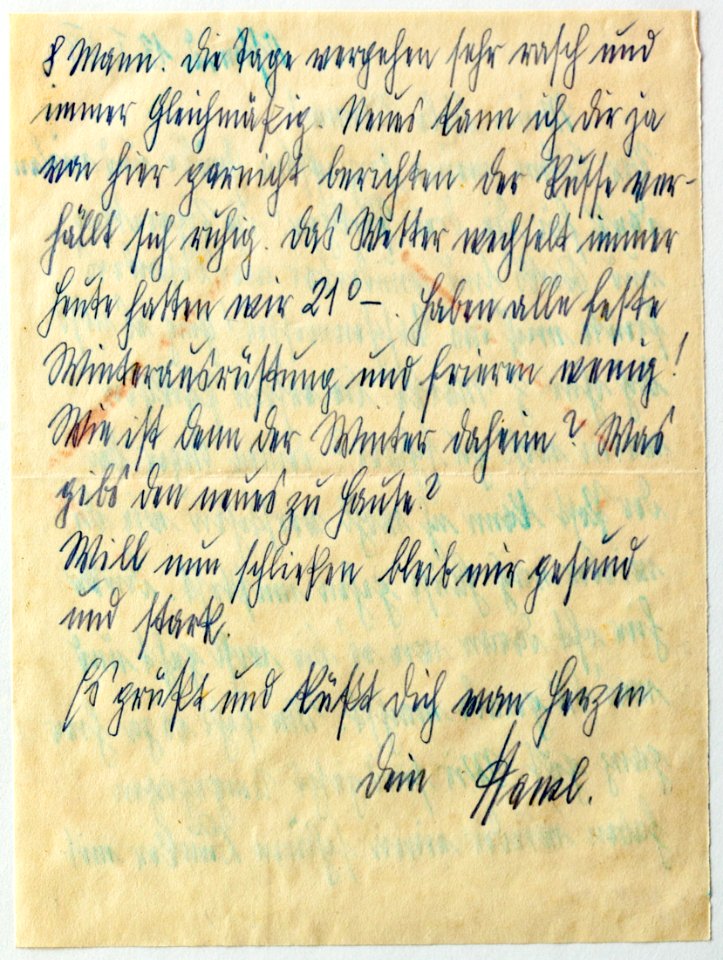 8 Mann. Die Tage vergehen sehr rasch und
immer Gleichmäßig. Neues kann ich dir ja
von hier garnicht berichten. Der Russe ver-
hällt sich ruhig. Das Wetter wechselt immer
heute hatten wir 21°–. Haben alle feste
Winterausrüstung und frieren wenig!
Wie ist denn der Winter daheim? Was
gibs den neues zu Hause?
Will nun schließen bleib mir gesund
und stark.
Es grüßt und küßt Dich von Herzen
Dein